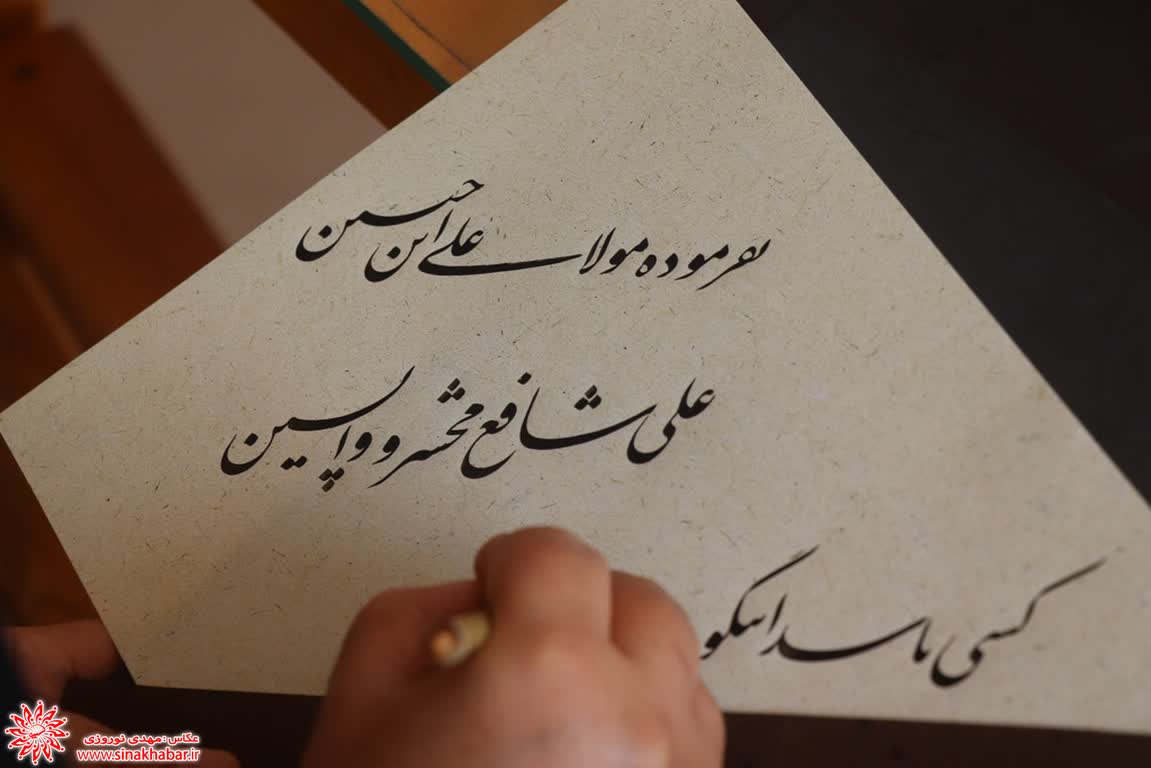 بفرموده مولای علی ابن حسین
علی شافع محشر و واپسین
کسی باشد اینگو
عکاس :مهدی نوروزی
www.sinakhabar.ir